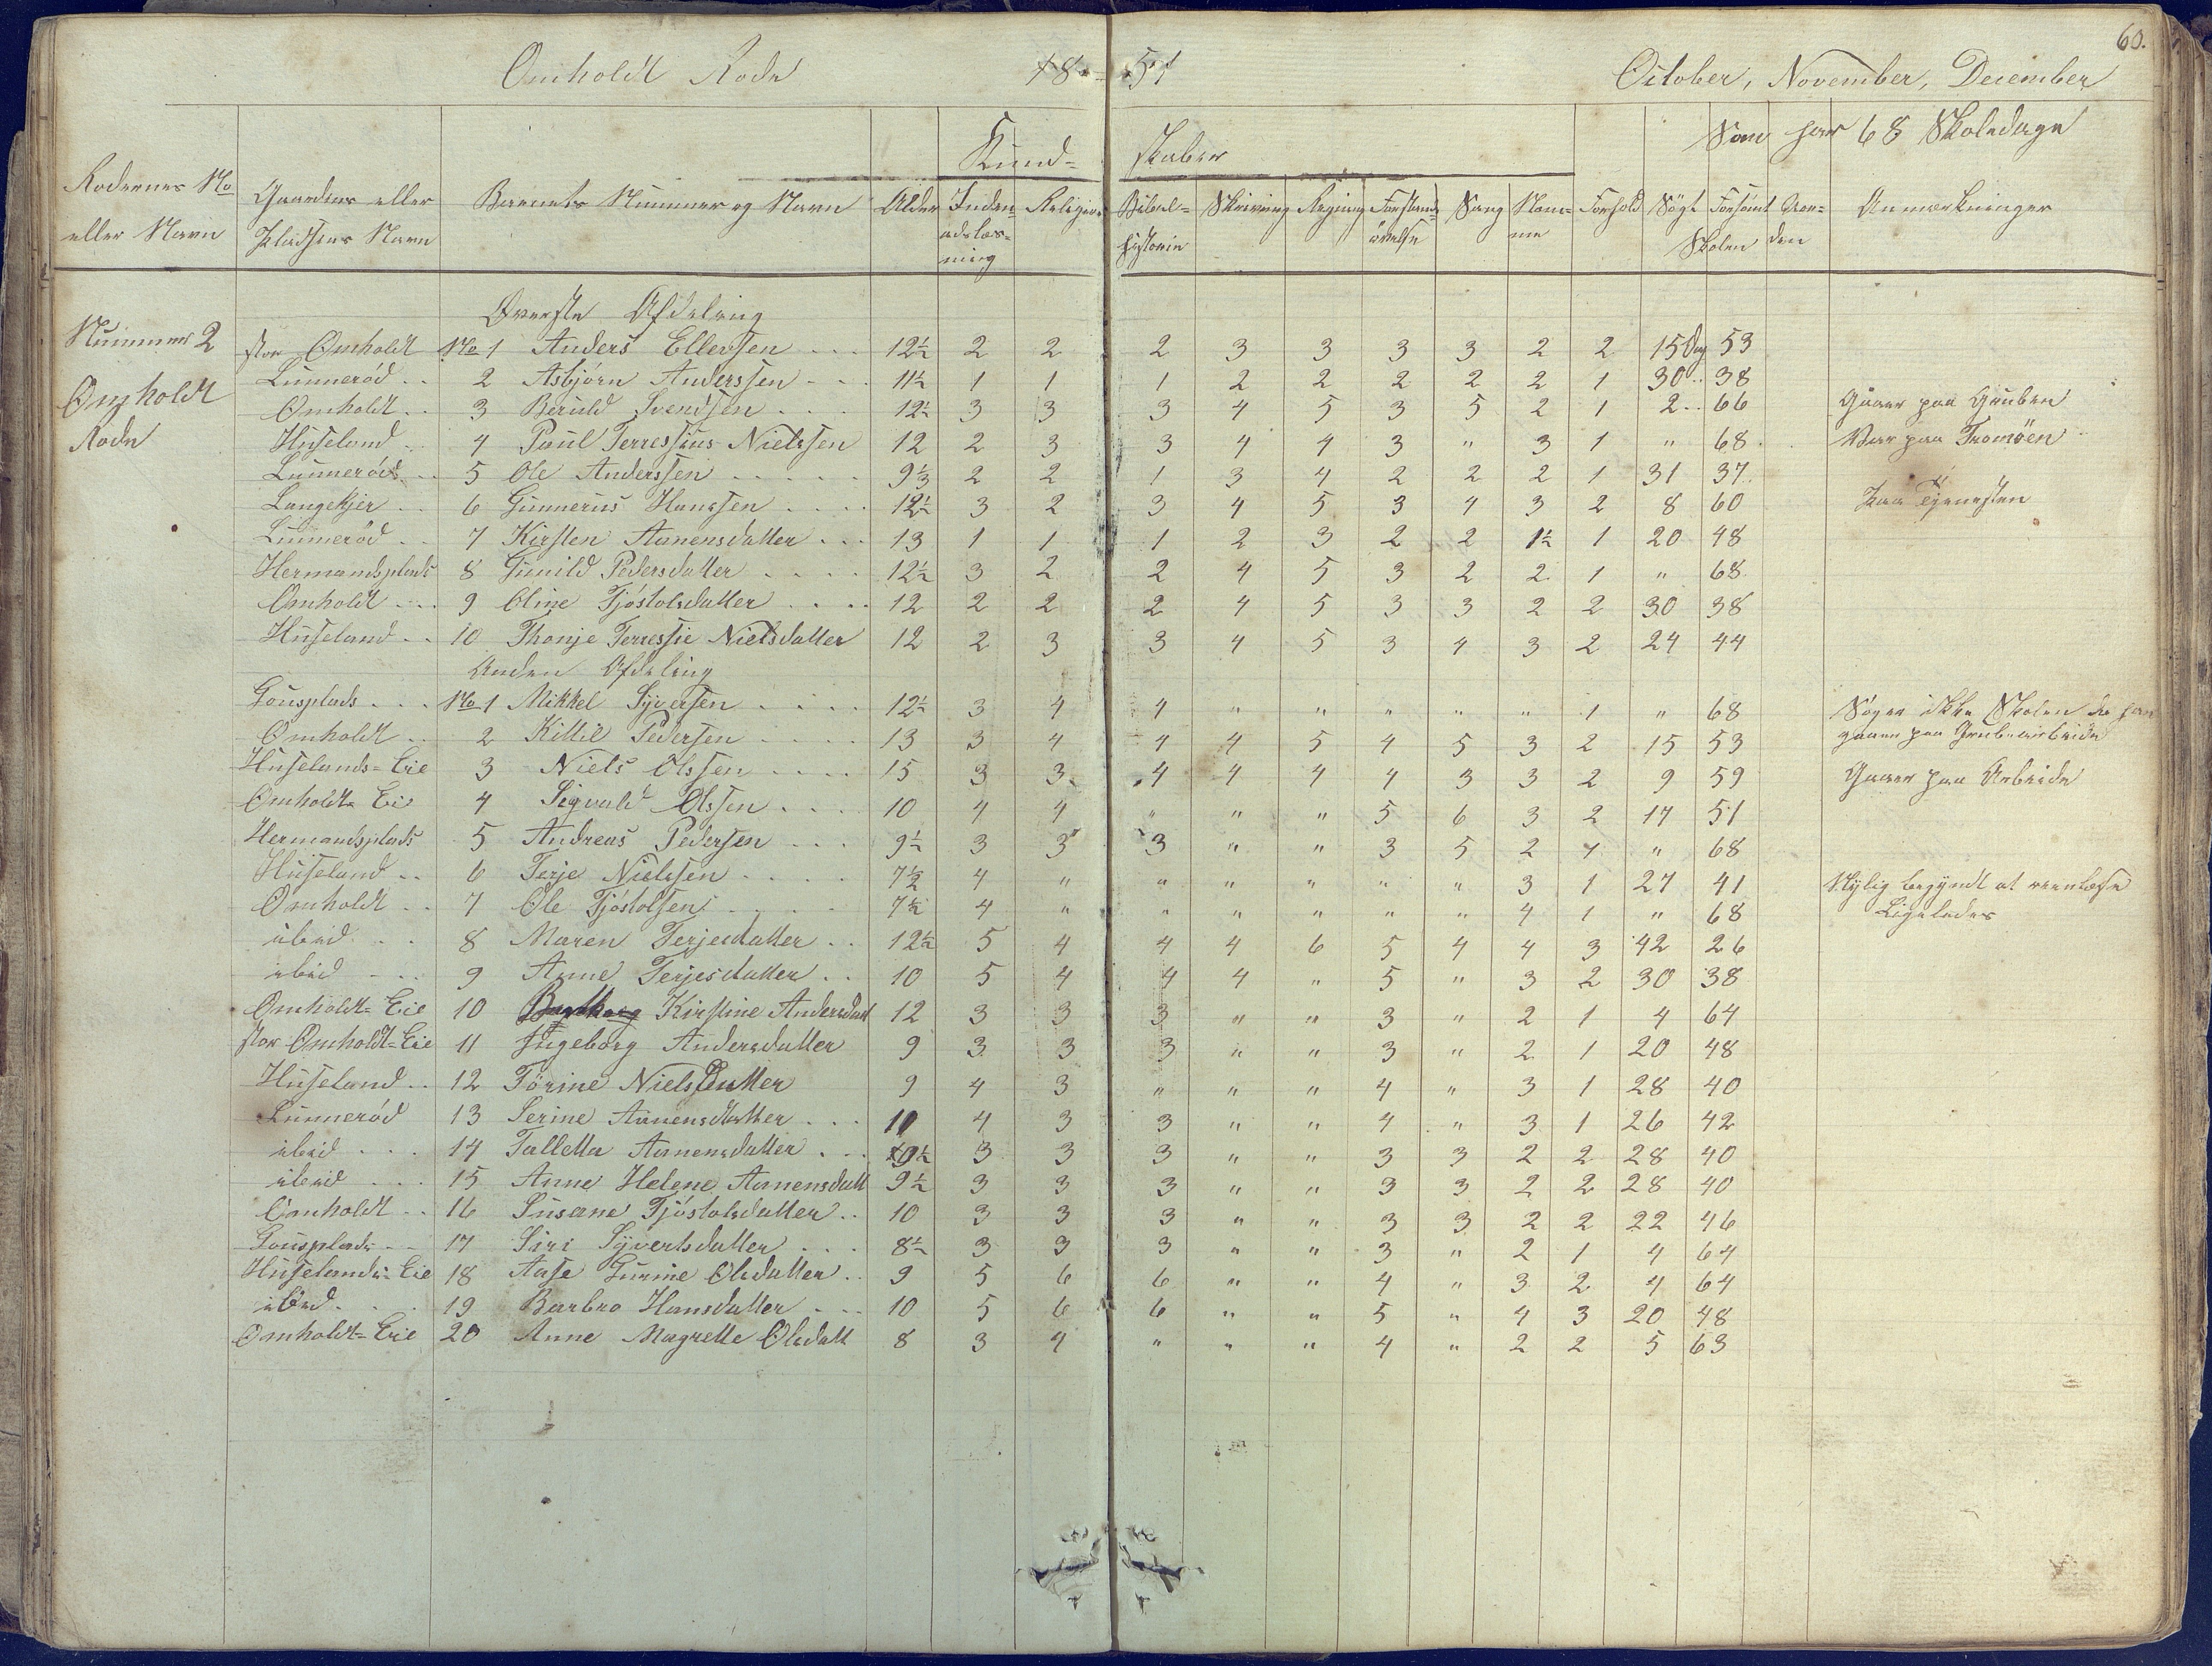 60.
Omholdt Rode 18 51 October, November, December
Som har 68 Skoledage
Kund= skaber
Rodernes No eller Navn Gaardens eller Pladsens Navn Barnets Nummer og Navn Alder Inden= adslæs= ning Religion Bibel= historie Skrivning Regning Forstands= øvelse Sang Nem= me Forhold Søgt Forsømt Skolen Aan= den Anmærkninger
Øverste Afdeling
Nummer 2 Omholdt Rode
stor Omholdt No 1 Anders Ellefsen 12½ 2 2 2 3 3 3 3 2 2 15 Dag 53
Lunnerød 2 Asbjørn Anderssen 11½ 1 1 1 2 2 2 2 2 1 30 38
Omholdt 3 Beruld Svendsen 12½ 3 3 3 4 5 3 5 2 1 2 66 Gaaer paa Gruben
Huseland 4 Poul Terressius Nielssen 12 2 3 3 4 4 3 " 3 1 " 68 Var paa Tromöen
Lunnerød 5 Ole Anderssen 9⅓ 2 2 1 3 4 2 2 2 1 31 37
Langekjer 6 Gunnerius Hanssen 12½ 3 2 3 4 5 3 4 3 2 8 60 paa Tjenesten
Lunnerød 7 Kirsten Aanensdatter 13 1 1 1 2 3 2 2 1½ 1 20 48
Hermandsplads 8 Gunild Pedersdatter 12½ 3 2 2 4 5 3 2 2 1 " 68
Omholdt 9 Oline Tjöstolsdatter 12 2 2 2 4 5 3 3 2 2 30 38
Huseland 10 Thonje Terressie Nielsdatter 12 2 3 3 4 5 3 4 3 2 24 44
Anden Afdeling
Gousplads No 1 Mikkel Syversen 12½ 3 4 4 " " " " " 1 " 68 Søger ikke Skolen da han
gaaer paa Grubearbeide
Omholdt 2 Kittil Pedersen 13 3 4 4 4 5 4 5 3 2 15 53
Huselands=Eie 3 Niels Olssen 15 3 3 4 4 4 4 3 3 2 9 59 Gaaer paa Arbeide
Omholdt Eie 4 Sigvald Olssen 10 4 4 " " " 5 6 3 2 17 51
Hermandsplads 5 Andreas Pedersen 9½ 3 3 3 " " 3 5 2 1 " 68
Huseland 6 Terje Nielssen 7½ 4 " " " " " " 3 1 27 41 Nylig begyndt at reenlæse
Omholdt 7 Ole Tjöstolsen 7½ 4 " " " " " " 4 1 " 68 Ligeledes
ibid 8 Maren Terjesdatter 12½ 5 4 4 4 6 5 4 4 3 42 26
ibid 9 Anne Terjesdatter 10 5 4 4 4 " 5 " 3 2 30 38
Omholdt=Eie 10 Kirstine Andersdatt 12 3 3 3 " " 3 " 2 1 4 64
stor Omholdt=Eie 11 Ingeborg Andersdatter 9 3 3 3 " " 3 " 2 1 20 48
Huseland 12 Törine Nielsdatter 9 4 3 " " " 4 " 3 1 28 40
Lunnerød 13 Serine Aanensdatter 11 4 3 3 " " 4 " 3 1 26 42
ibid 14 Talletta Aanensdatter 9½ 3 3 3 " " 3 3 2 2 28 40
ibid 15 Anne Helene Aanensdatt 9½ 3 3 3 " " 3 3 2 2 28 40
Omholdt 16 Susane Tjöstolsdatter 10 3 3 3 " " 3 3 2 2 22 46
Gousplads 17 Siri Syvertsdatter 8½ 3 3 3 " " 3 " 2 1 4 64
Huselands=Eie 18 Aase Gurine Olsdatter 9 5 6 6 " " 4 " 3 2 4 64
ibid 19 Barbro Hansdatter 10 5 6 6 " " 5 " 4 3 20 48
Omholdt=Eie 20 Anne Magrette Olsdatt 8 3 4 " " " 4 " 2 2 5 63